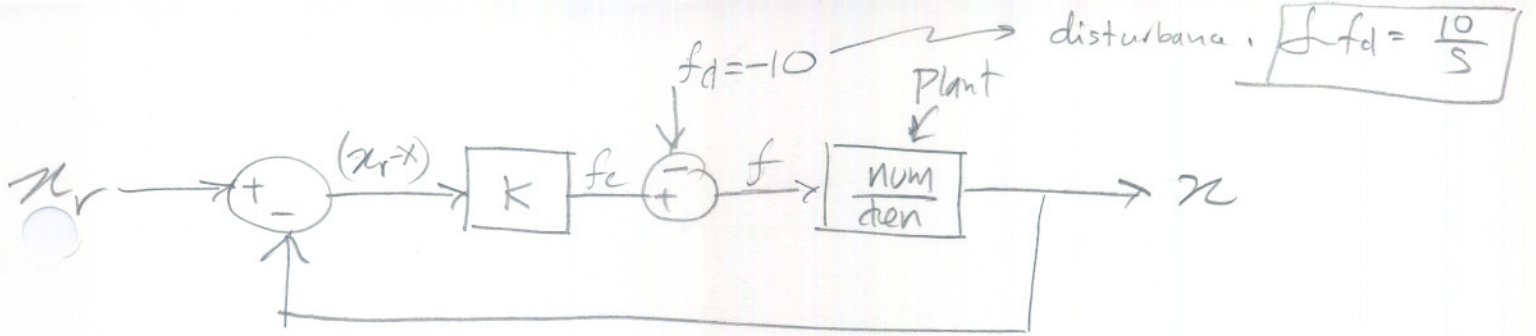 f_d = -10
disturbance. ℒ f_d = 10/S
Plant
x_r
+
-
(x_r-x)
K
f_c
-
+
f
num
den
x